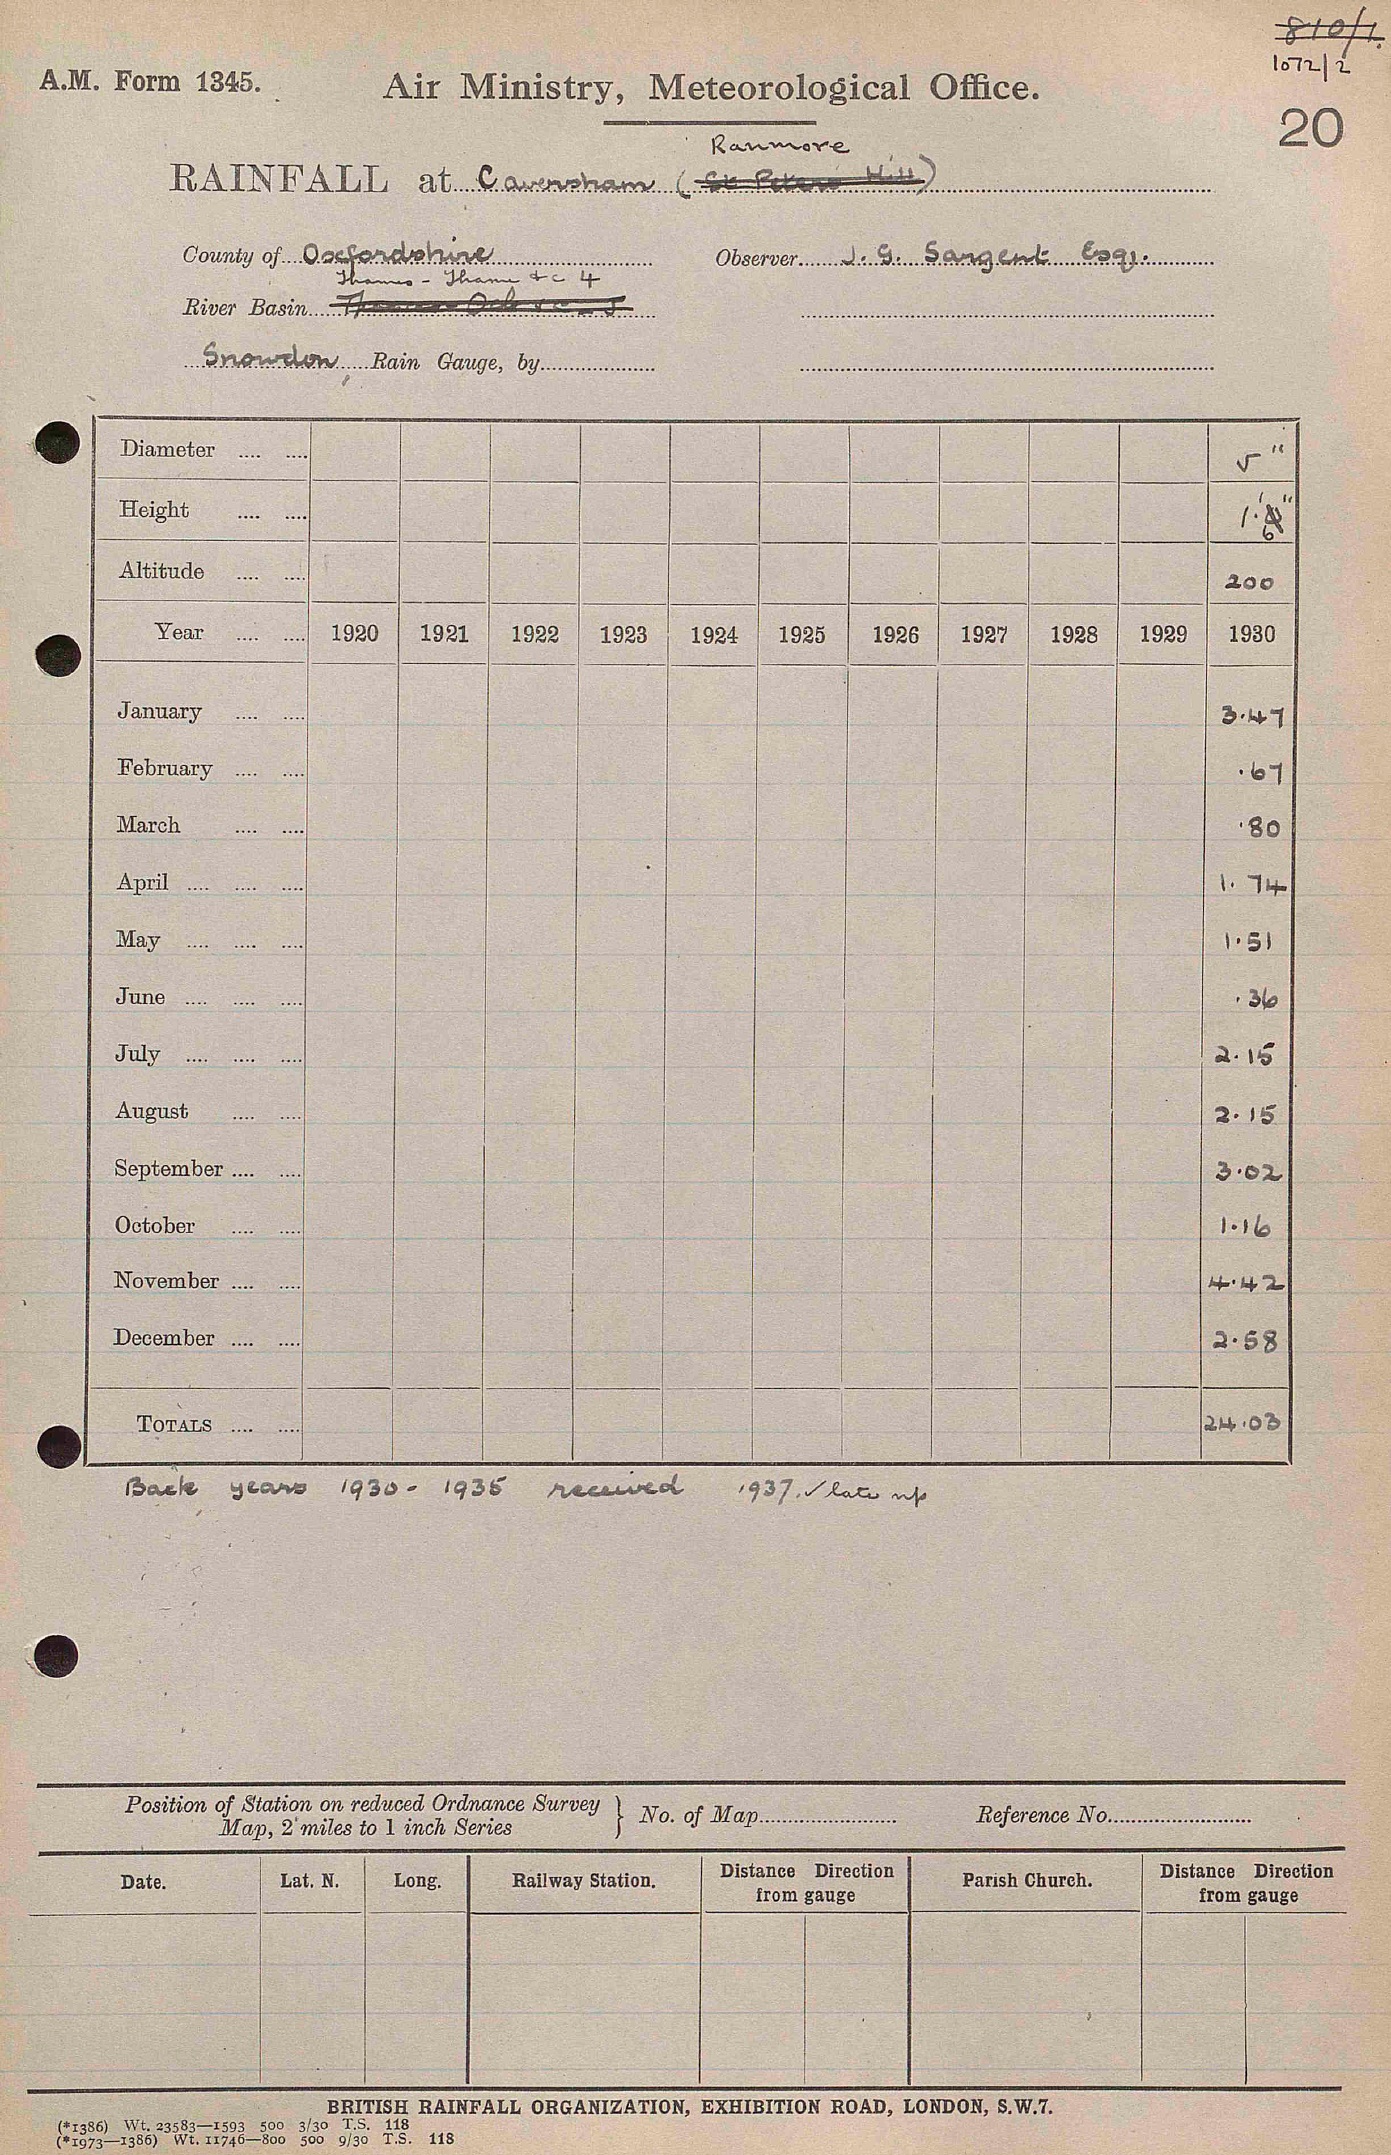 810/1.
1072/2
A.M. Form 1345.
Air Ministry, Meteorological Office.
20
Ranmore
RAINFALL at Caversham (St Peters Hill)
County of Oxfordshire Observer J. G. Sargent Esq.
Thames - Thame & c 4
River Basin
Snowdon Rain Gauge, by
Diameter .... .... 5"
Height .... .... 1' 6"
Altitude .... .... 200
Year .... .... 1920 1921 1922 1923 1924 1925 1926 1927 1928 1929 1930
January .... .... 3.47
February .... .... .67
March .... .... .80
April .... .... .... 1.74
May .... .... .... 1.51
June .... .... .... .36
July .... .... .... 2.15
August .... .... 2.15
September .... .... 3.02
October .... .... 1.16
November .... .... 4.42
December .... .... 2.58
TOTALS .... .... 24.03
Back years 1930 - 1935 received 1937. ✓ late
Position of Station on reduced Ordnance Survey
Map, 2 miles to 1 inch Series } No. of Map Reference No.
Date. Lat. N. Long. Railway Station. Distance Direction from gauge Parish Church. Distance Direction from gauge
BRITISH RAINFALL ORGANIZATION, EXHIBITION ROAD, LONDON, S.W.7.
(*1386) Wt. 23583—1593 500 3/30 T.S. 118
(*1973—1386) Wt. 11746—800 500 9/30 T.S. 118